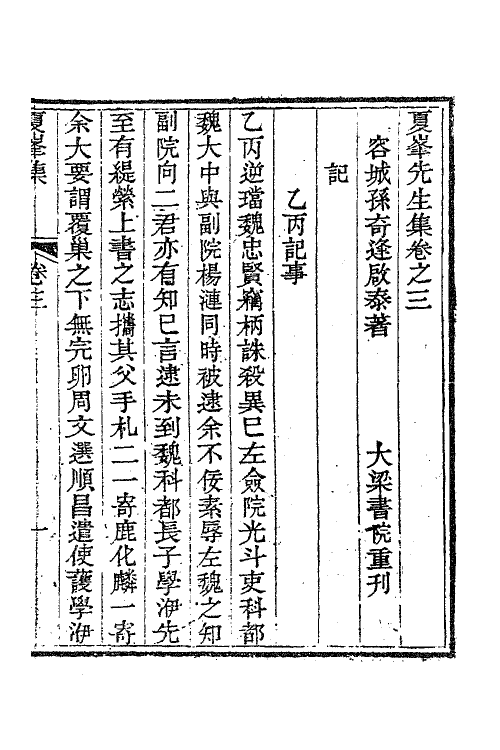 夏峯先生集卷之三
容城孫奇逢啟泰著　大梁書院重刊
記
乙丙記事
乙丙逆璫魏忠賢竊柄誅殺異已左僉院光斗吏科都
魏大中與副院楊漣同時被逮余不佞素辱左魏之知
副院向二君亦有知已言逮未到魏科都長子學洢先
至有緹縈上書之志攜其父手札二一寄鹿化麟一寄
余大要謂覆巢之下無完卵周文選順昌遣使護學洢
夏峯集　卷三　一